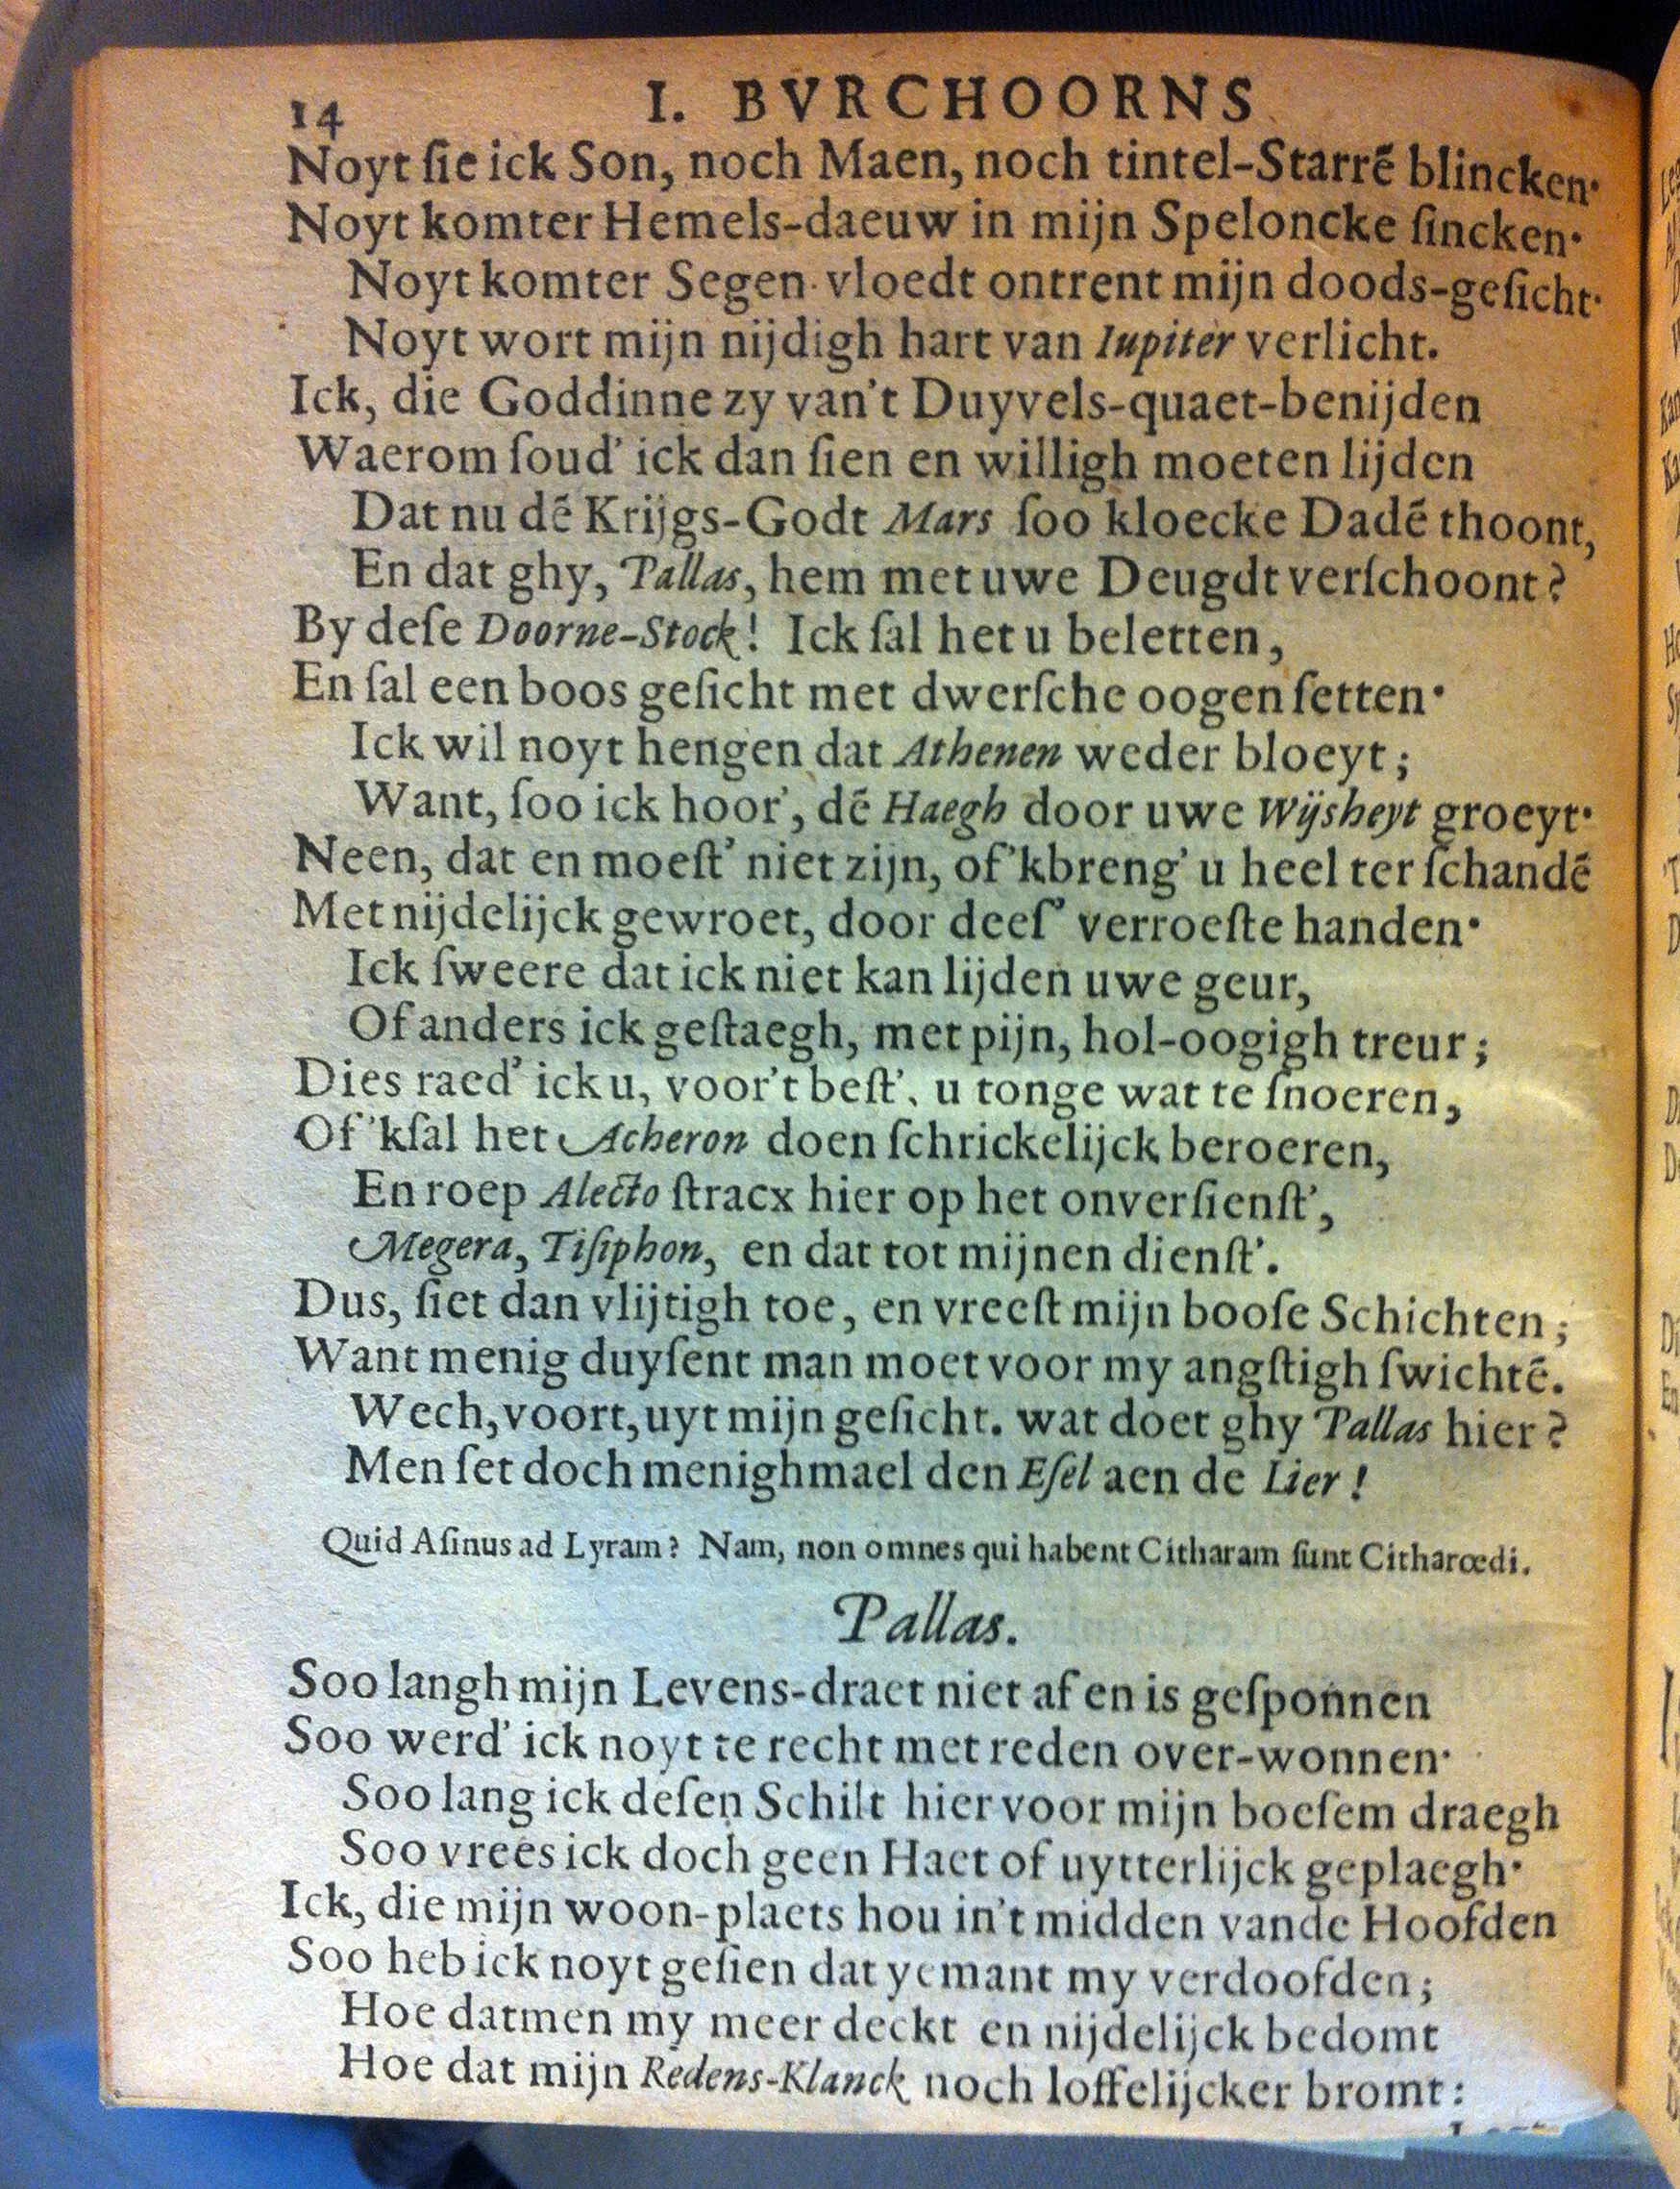 14 I. BVRCHOORNS
Noyt ſie ick Son, noch Maen, noch tintel-Starrẽ blincken·
Noyt komter Hemels-daeuw in mijn Speloncke ſincken·
Noyt komter Segen· vloedt ontrent mijn doods-geſicht·
Noyt wort mijn nijdigh hart van Iupiter verlicht.
Ick, die Goddinne zy van't Duyvels-quaet-benijden
Waerom ſoud' ick dan ſien en willigh moeten lijden
Dat nu dẽ Krijgs-Godt Mars ſoo kloecke Dadẽ thoont,
En dat ghy, Pallas, hem met uwe Deugdt verſchoont?
By deſe Doorne-Stock! Ick ſal het u beletten,
En ſal een boos geſicht met dwerſche oogen ſetten·
Ick wil noyt hengen dat Athenen weder bloeyt;
Want, ſoo ick hoor', dẽ Haegh door uwe Wijsheyt groeyt·
Neen, dat en moeſt' niet zijn, of 'kbreng' u heel ter ſchandẽ
Met nijdelijck gewroet, door deeſ' verroeſte handen·
Ick ſweere dat ick niet kan lijden uwe geur,
Of anders ick geſtaegh, met pijn, hol-oogigh treur;
Dies raed' ick u, voor't beſt', u tonge wat te ſnoeren,
Of 'kſal het Acheron doen ſchrickelijck beroeren,
En roep Alecto ſtracx hier op het onverſienſt',
Megera, Tiſiphon, en dat tot mijnen dienſt'.
Dus, ſiet dan vlijtigh toe, en vreeſt mijn booſe Schichten;
Want menig duyſent man moet voor my angſtigh ſwichtẽ.
Wech, voort, uyt mijn geſicht. wat doet ghy Pallas hier?
Men ſet doch menighmael den Eſel aen de Lier!
Quid Aſinus ad Lyram? Nam, non omnes qui habent Citharam ſunt Citharœdi.
Pallas.
Soo langh mijn Levens-draet niet af en is geſponnen
Soo werd' ick noyt te recht met reden over-wonnen·
Soo lang ick deſen Schilt hier voor mijn boeſem draegh
Soo vrees ick doch geen Haet of uytterlijck geplaegh·
Ick, die mijn woon-plaets hou in't midden vande Hoofden
Soo heb ick noyt geſien dat yemant my verdoofden;
Hoe datmen my meer deckt en nijdelijck bedomt
Hoe dat mijn Redens-Klanck noch loffelijcker bromt: